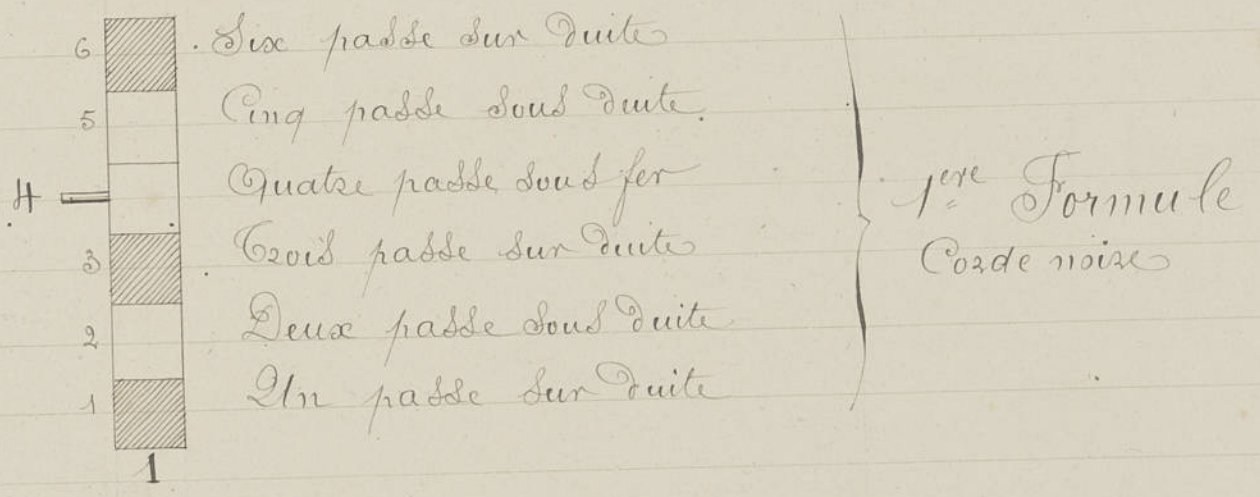 6 Six passe sur duite
5 Cinq passe sous duite.
4 Quatre passe sous fer
3 Trois passe sur duite
2 Deux passe sous duite
1 Un passe sur duite
1
1ère Formule
Corde noire